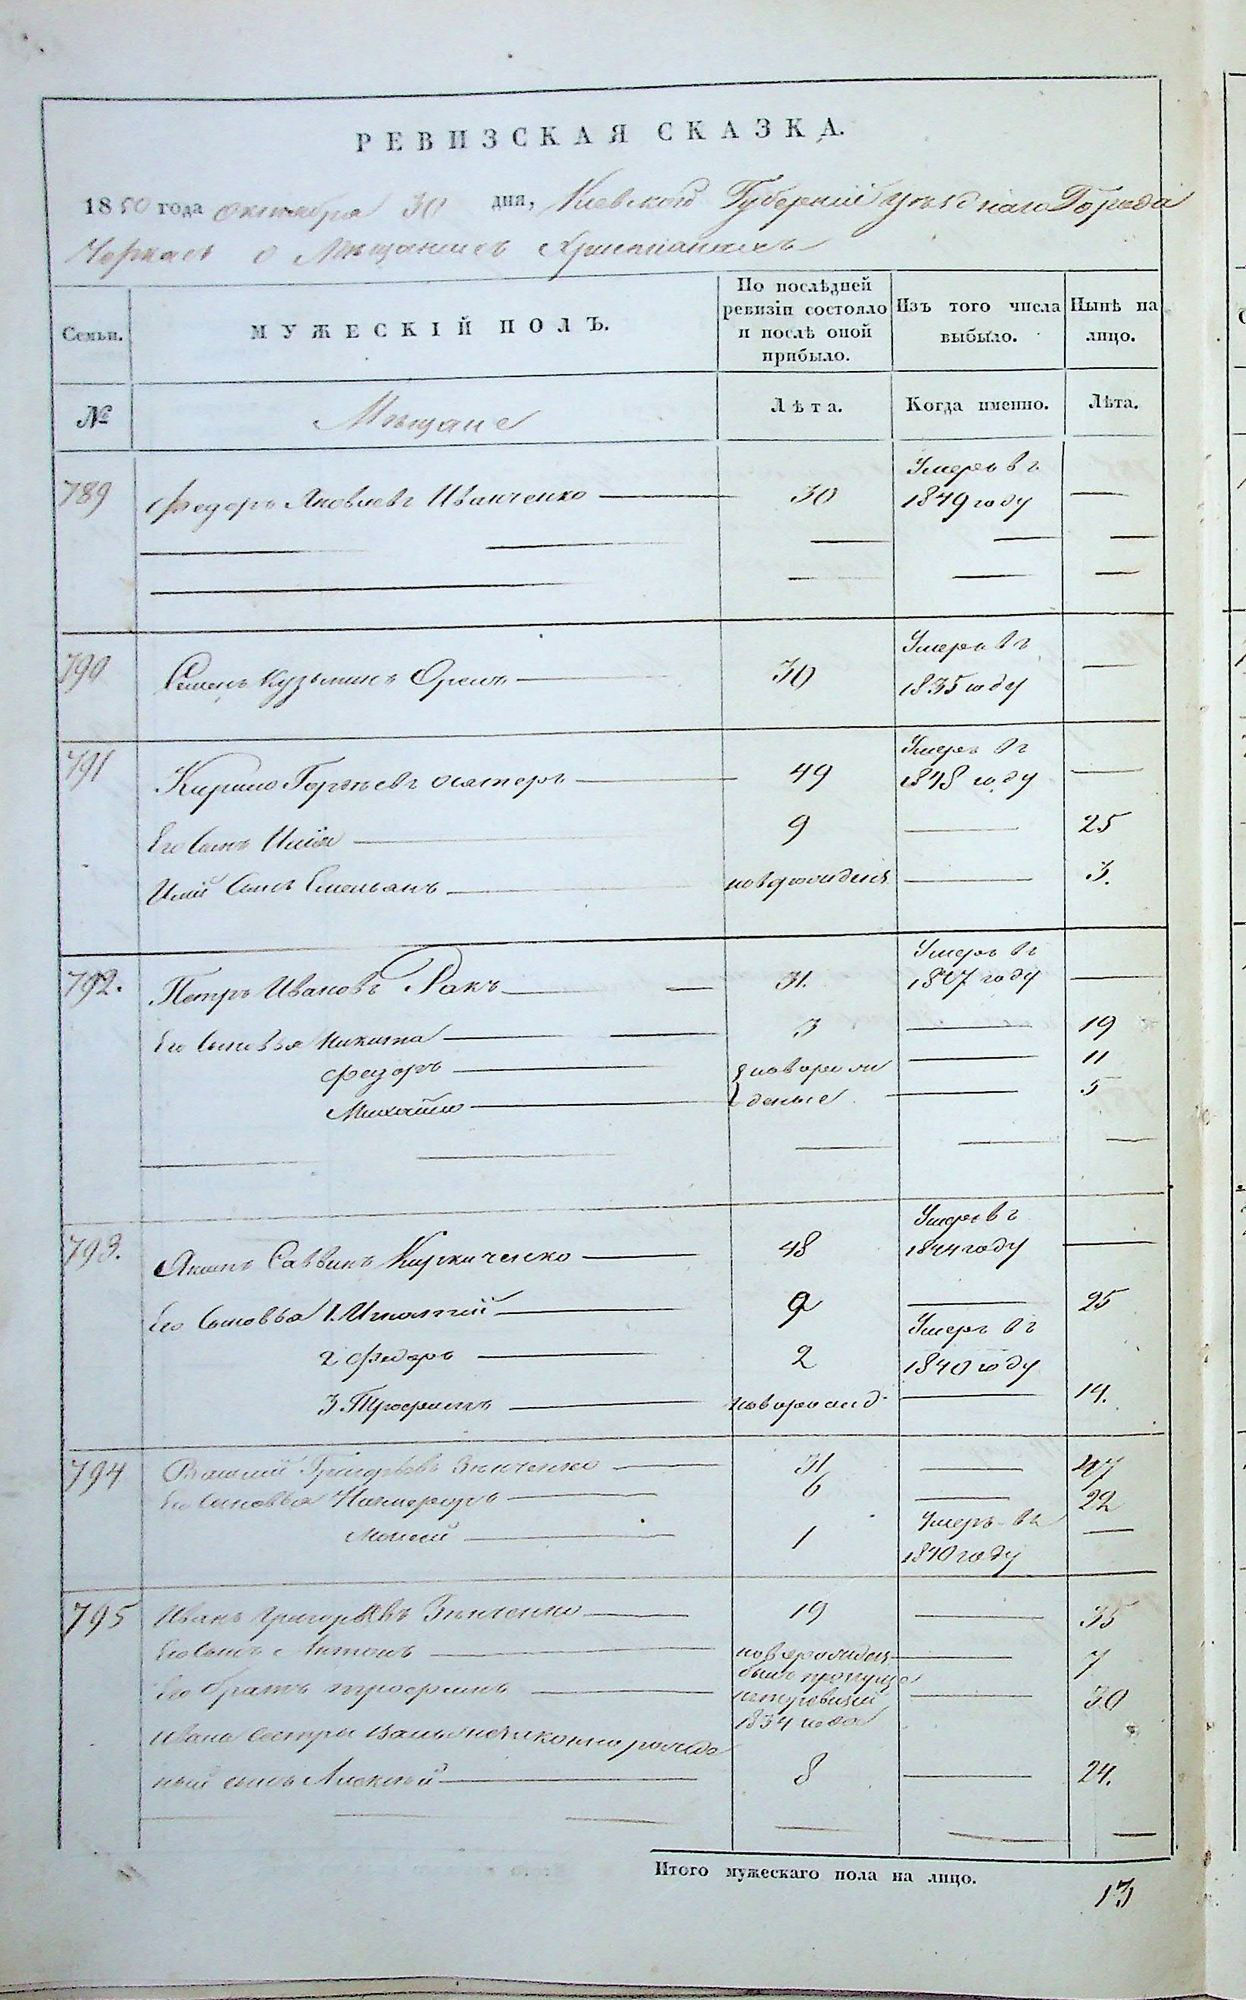 РЕВИЗСКАЯ СКАЗКА.
1850 года октября 30 дня, Киевской Губернии Уѣзднаго Города
Черкасъ о Мѣщанахъ Христианахъ
Семьи.
МУЖЕСКІЙ ПОЛЪ.
По послѣдней ревизіи состояло и послѣ оной прибыло.
Изъ того числа выбыло.
Нынѣ на лицо.
№
Мѣщане
Лѣта.
Когда именно.
Лѣта.
789 Федоръ Яковлевъ Иванченко — 30 Умеръ въ 1849 году —
790 Семенъ Кузьминъ — 30 Умеръ въ 1835 году —
791 Кирило — 49 Умеръ въ 1848 году —
Его Сынъ Илія — 9 — 25
Иліи Сынъ Емельянъ — новорожденъ — 3.
792. Петръ Ивановъ Ракъ — 31. Умеръ въ 1847 году —
Его Сыновья Никита — 3 — 19
Федоръ — новорож — 11
Михайло — денные — 5
793. Якимъ Саввинъ Кириченко — 48 Умеръ въ 1844 году —
Его Сыновья 1. Игнатий — 9 — 25
2 Федоръ — 2 Умеръ въ 1840 году
3. Трофимъ — новорожд. — 14.
794 Василий Григорьевъ Зѣнченко — 31 — 47
Его Сыновья Никифоръ — 6 — 22
Моисей — 1 Умеръ въ 1840 году —
795 Иванъ Григорьевъ Зѣнченко — 19 — 35
Его Сынъ Антонъ — новорожден — 7
Его братъ Трофимъ — былъ пропущенъ ревизіи 1834 года — 30
Ивана Сестры незаконнорожде
ный сынъ Алексѣй — 8 — 24.
Итого мужескаго пола на лицо.
13